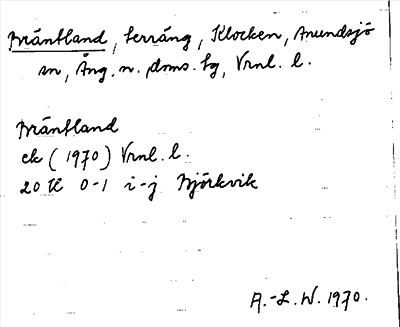 Bräntland, terräng, Klocken, Anundsjö
sn, Ång. n. doms. tg, Vrnl. l.
Bräntland
ek (1970) Vrnl. l.
20 H 0-1 i-j Björkvik
A.-L. W. 1970.